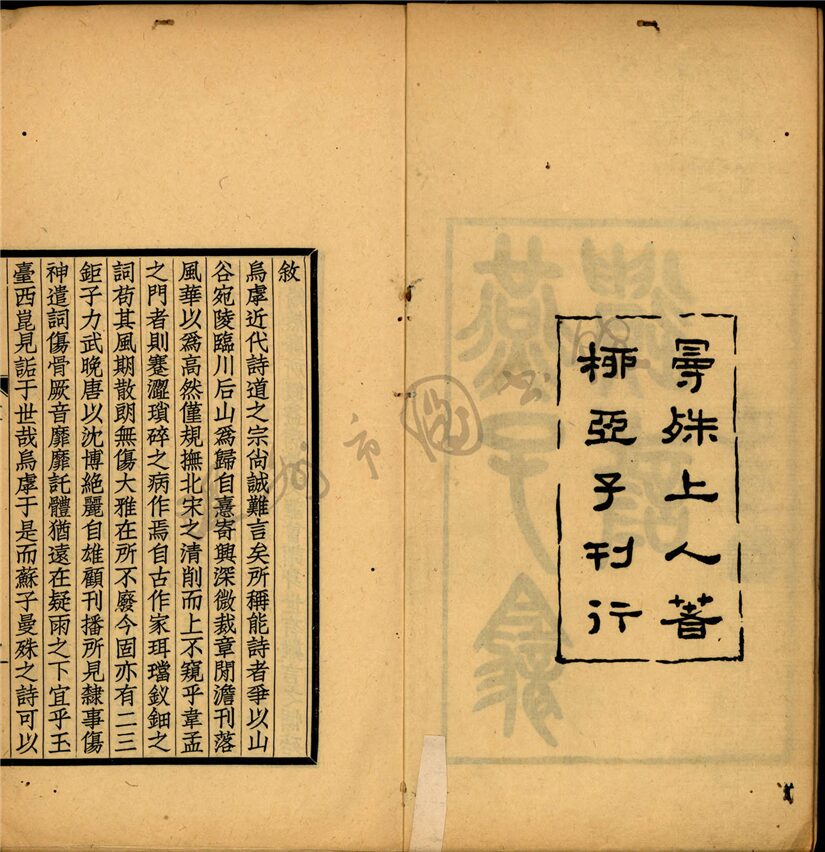 曼殊上人著
柳亞子刊行
敘
烏虖近代詩道之宗尙誠難言矣所稱能詩者爭以山
谷宛陵臨川后山爲歸自憙寄興深微裁章閒澹刊落
風華以爲高然僅規撫北宋之清削而上不窺乎韋孟
之門者則蹇澀瑣碎之病作焉自古作家珥璫釵鈿之
詞苟其風期散朗無傷大雅在所不廢今固亦有二三
鉅子力武晚唐以沈博絕麗自雄顧刊播所見隸事傷
神遣詞傷骨厥音靡靡託體猶遠在疑雨之下宜乎玉
臺西崑見詬于世哉烏虖于是而蘇子曼殊之詩可以